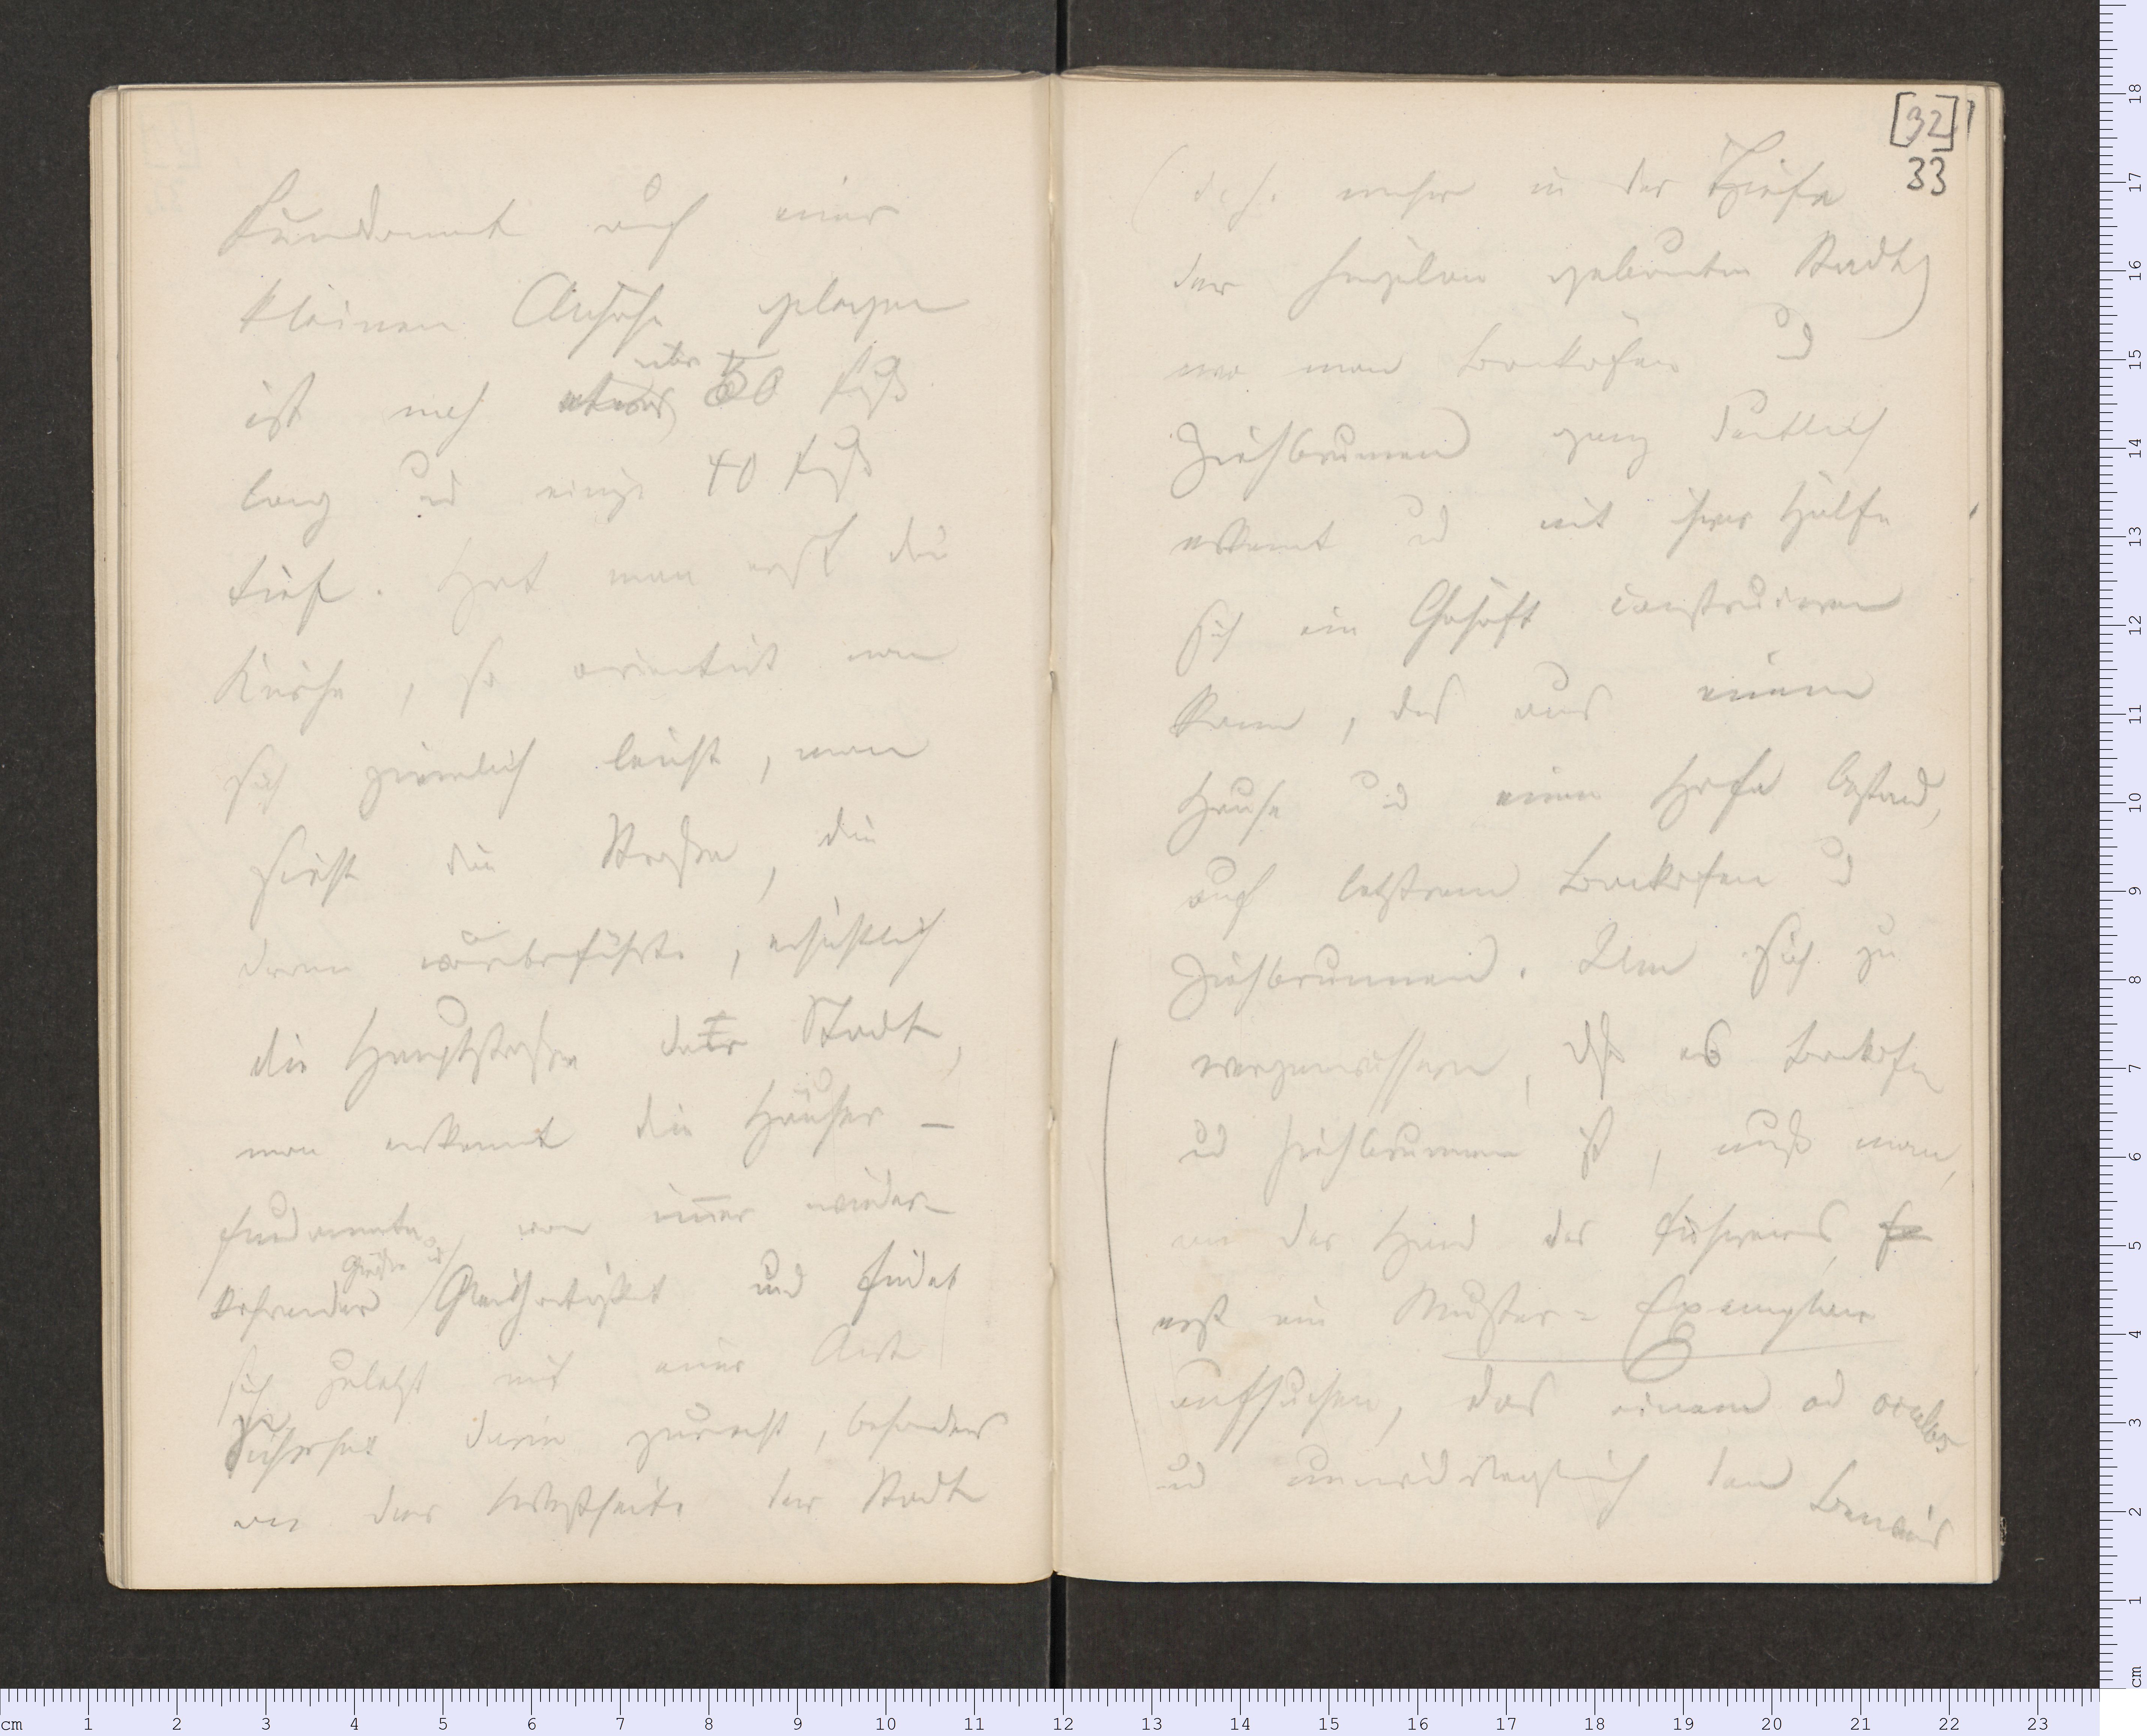 Fundament auf einer
kleinen Anhöhe gelegen
ist noch etwas über 50 Fuß
lang und einige 40 Fuß
tief. Hat man erst die
Kirche, so orientirt man
sich ziemlich leicht, man
sieht die Straße, die
daran vorüberführte, ersichtlich
die Hauptstraße der Stadt,
man erkennt die Häuser-
fundamente, von immer wieder-
kehrender Größe u Gleichartigkeit und findet
sich zuletzt mit einer Art
Sicherheit darin zurecht, besonders
an der Westseite der Stadt
[32]
33
(d. h. mehr in der Tiefe
der hüglen gebauten Stadt)
wo man Backöfen u
Ziehbrunnen ganz deutlich
erkennt ud mit ihrer Hülfe
sich ein Gehöft construiren
kann, das aus einem
Hause ud einem Hofe bestand,
auf letztrem Backofen u
Ziehbrunnen. Um sich zu
vergewissern, dß es Backofen
ud Ziehbrunnen ist, muß man,
an der Hand des Führers,
erst ein Muster-Exemplar
aufsuchen, das einem ad oculos
ud unwiderleglich den Beweis